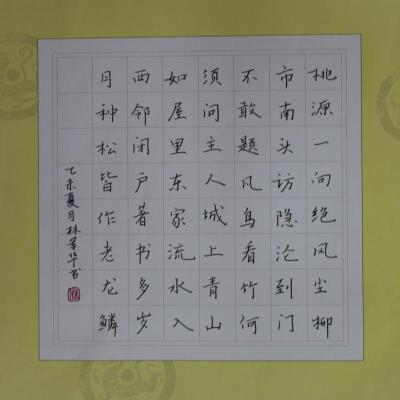 桃源一向绝风尘柳
市南头访隐沦到门
不敢题凡鸟看竹何
须问主人城上青山
如屋里东家流水入
西邻闭户著书多岁
月种松皆作老龙鳞
乙未夏月林华书